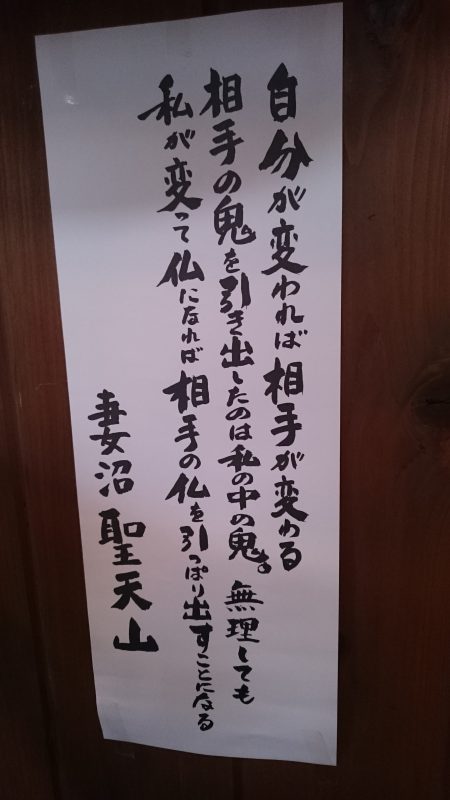 自分が変われば相手が変わる
相手の鬼を引き出したのは私の中の鬼 無理しても
私が変って仏になれば相手の仏を引っぱり出すことになる
妻沼聖天山